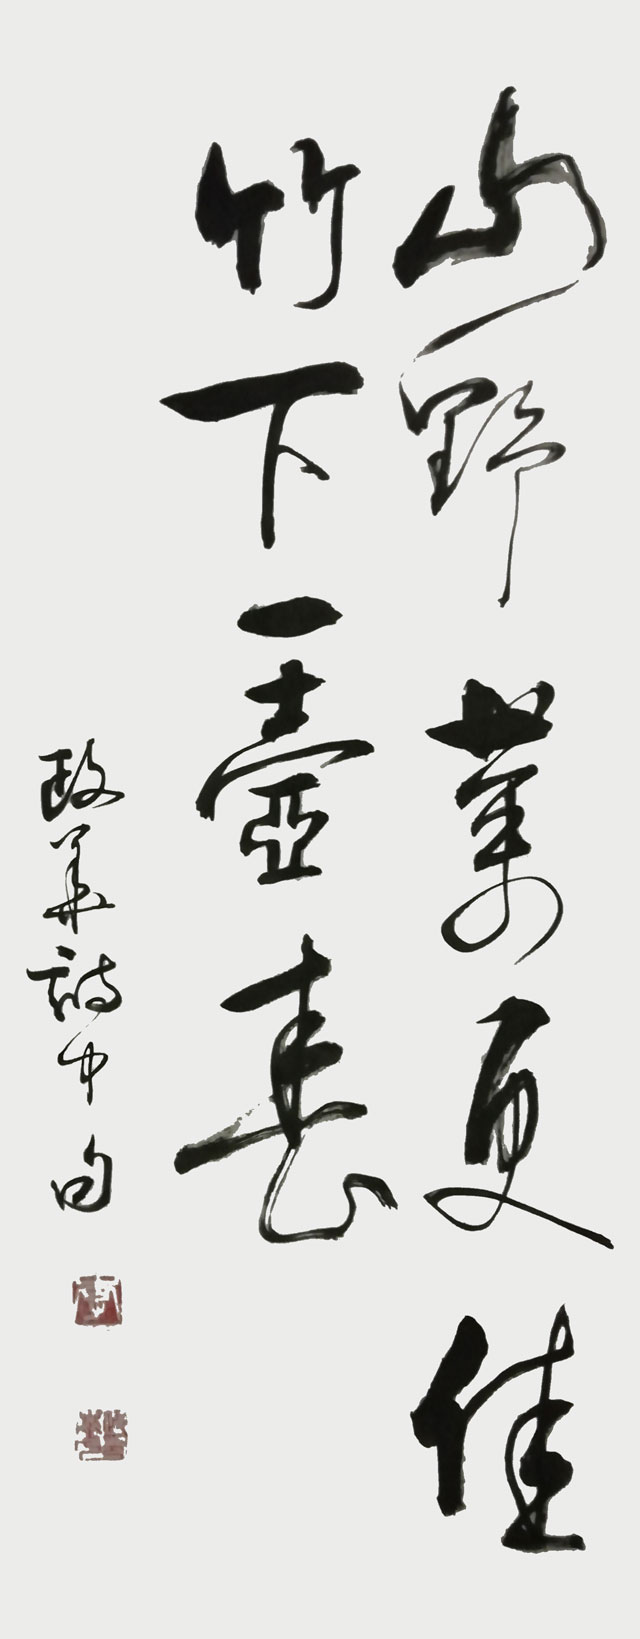 山野萬更佳
竹下一壺春
政華詩中句